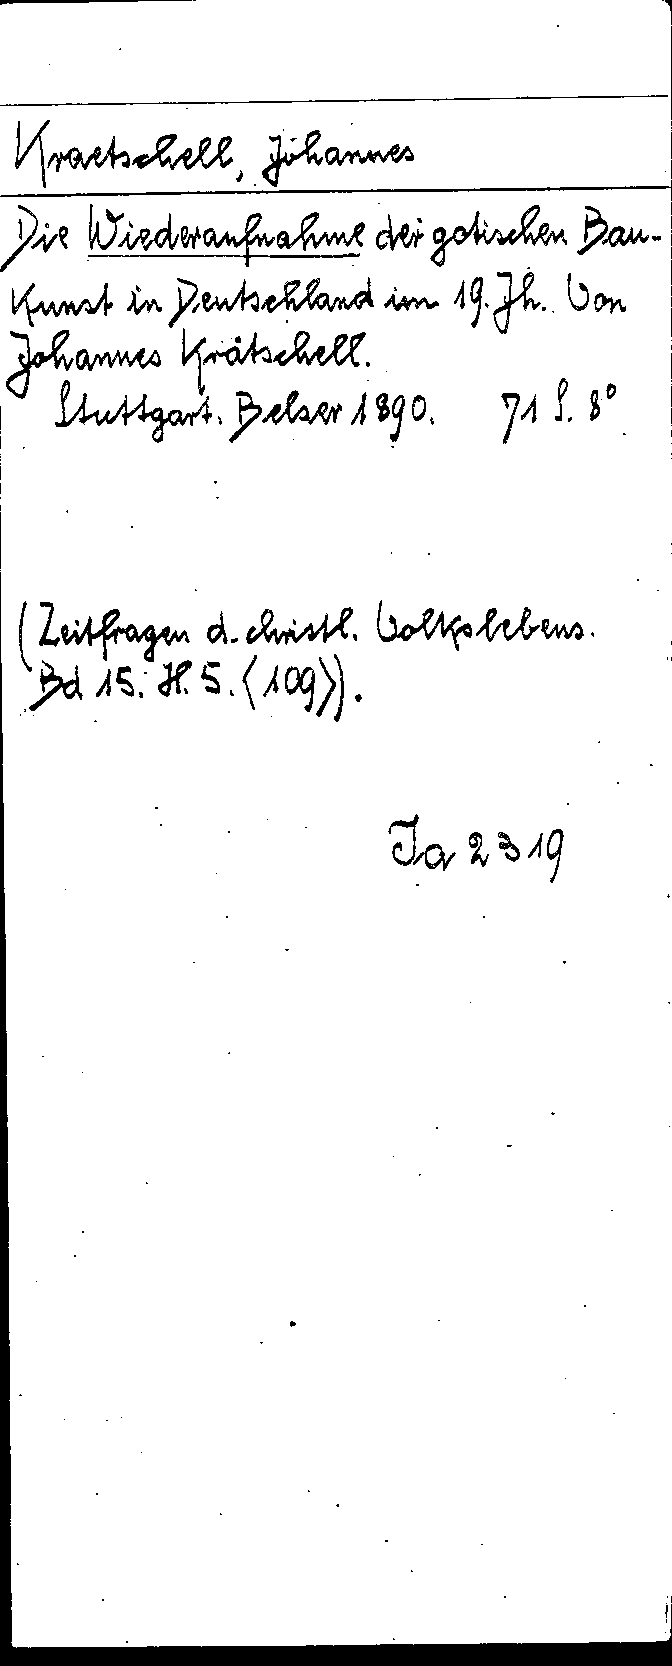 Kraetschell, Johannes
Die Wiederaufnahme der gotischen Bau-
kunst in Deutschland im 19. Jh. Von
Johannes Krätschell.
Stuttgart. Belser 1890. 71 S. 8°
(Zeitfragen d. christl. Volkslebens.
Bd 15. H. 5. <109>).
Ja 2319